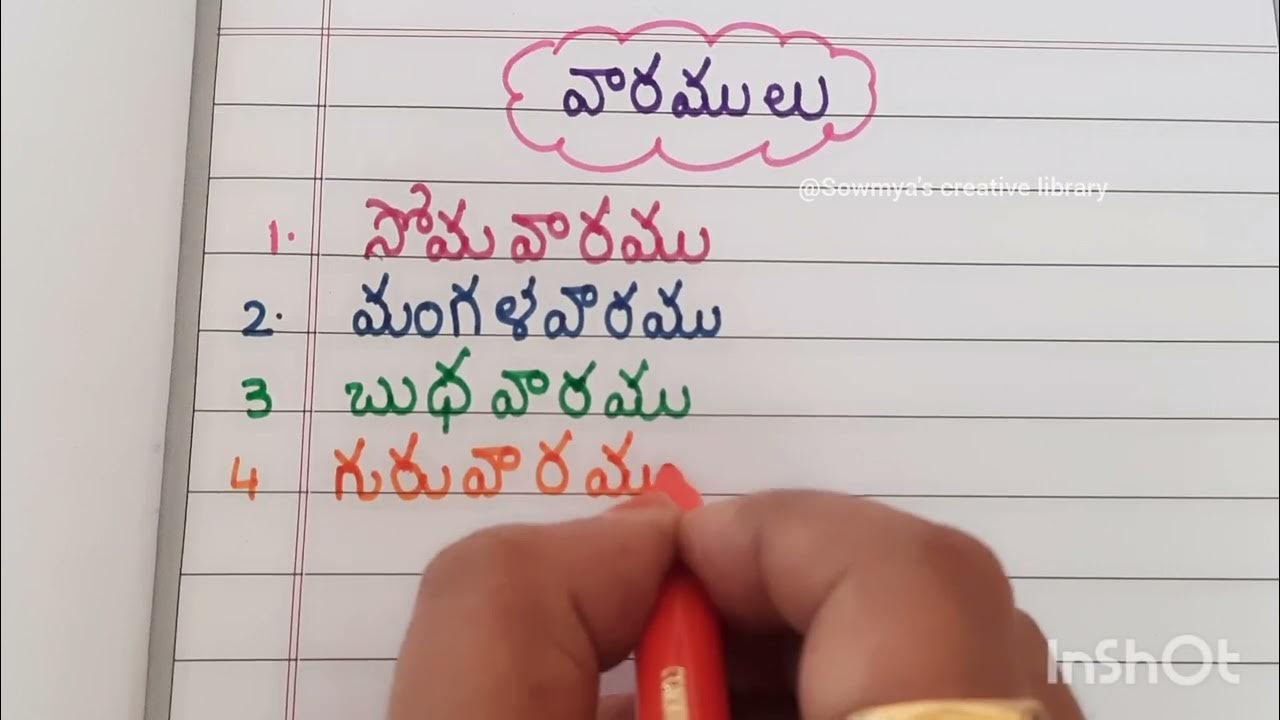 వారములు
@Sowmya's creative library
1. సోమవారము
2. మంగళవారము
3 బుధవారము
4 గురువారము
InShOt